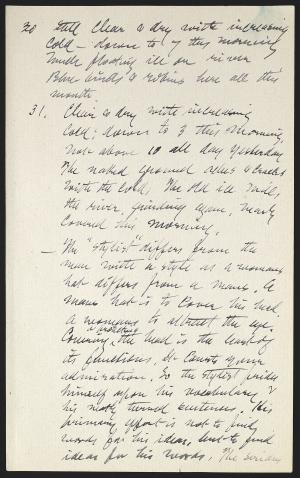 30 Still clear & dry with increasing
cold – down to 7 this morning
Much floating ice on river
Blue birds & robins here all this
month
31. Clear & dry with increasing
cold; down to 3 this morning,
not above 10 all day yesterday
The naked ground aches & cracks
with the cold. The old ice mills,
the river, grinding again, nearly
covered this morning.
— The "stylist" differs from the
man with a style as a womans
hat differs from a mans. A
mans hat is to cover his head,
a womans to attract the eye.
Covering & protecting the head is the least of
its functions. It courts your
admiration. So the stylist prides
himself upon his vocabulary &
his nicely turned sentences. His
primary effort is not to find
words for his ideas, but to find
ideas for his words. The serious